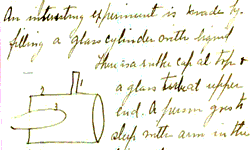 An interesting experiment is made by
filling a glass cylinder with liquid
there is a rubber cap at top &
a glass at upper
end. A person goes
sleep with arm in the
2 1